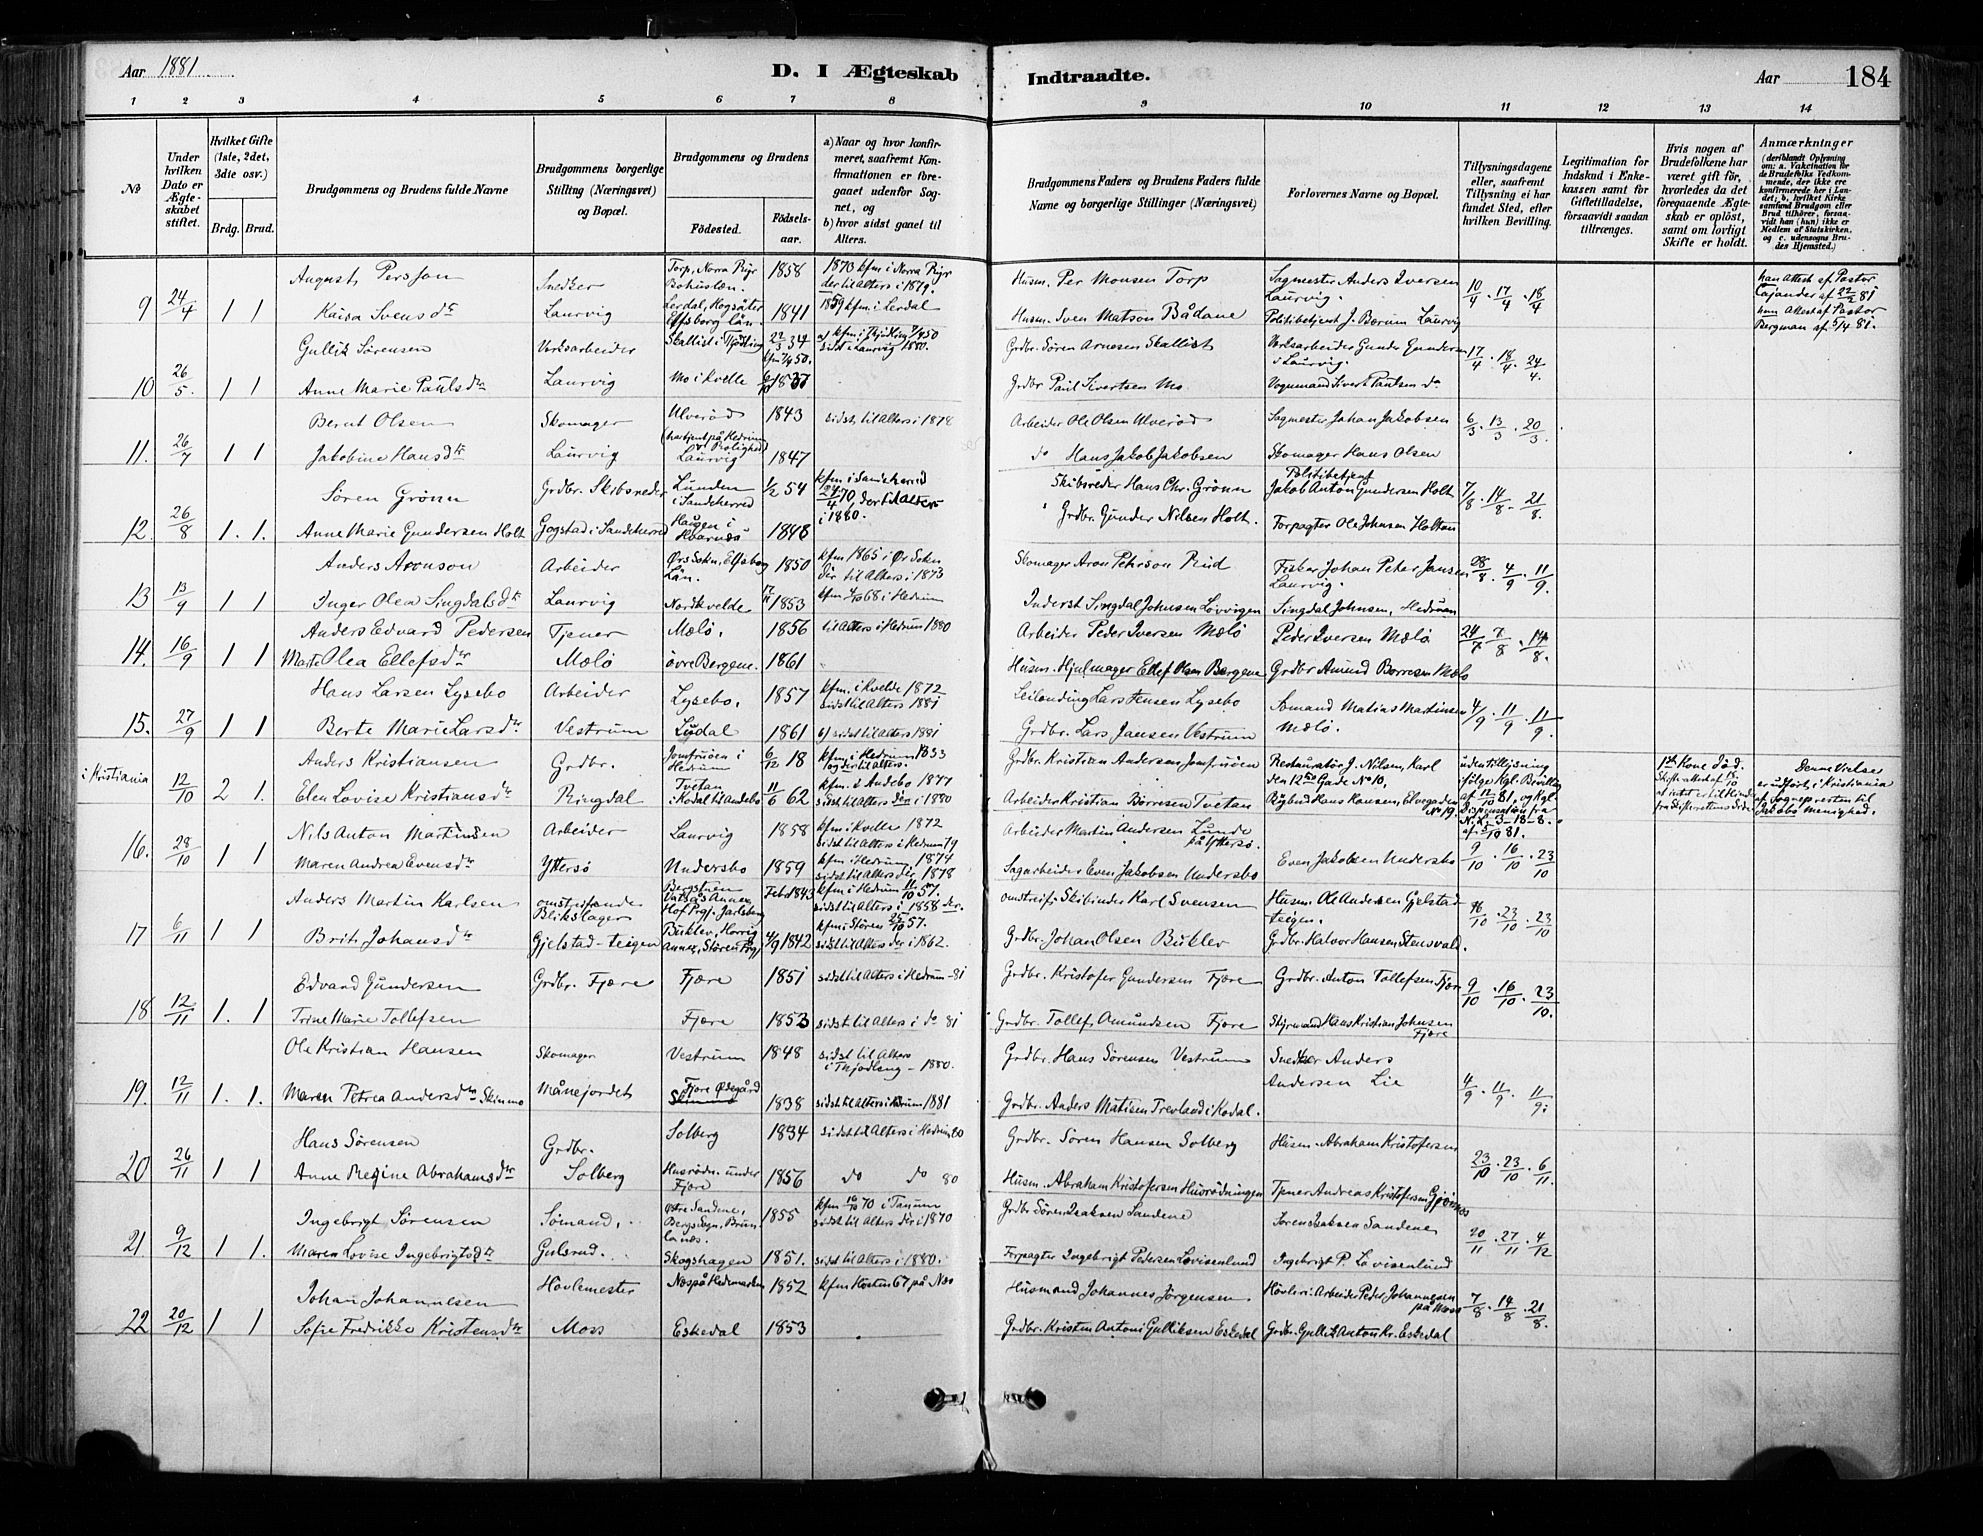 Aar 1881. D. I Ægteskab Indtraadte. Aar 184
1 2 3 4 5 6 7 8 9 10 11 12 13 14
No
Under hvilken Dato er Ægteskabet stiftet.
Hvilket Gifte (1ste, 2det, 3die osv.)
Brdg. Brud.
Brudgommens og Brudens fulde Navne
Brudgommens borgerlige Stilling (Næringsvei) og Bopæl.
Brudgommens og Brudens
Fødested. Fødselsaar.
a) Naar og hvor konfirmeret, saafremt Konfirmationen er foregaaet udenfor Sognet, og
b) hvor sidst gaaet til Alters.
Brudgommens Faders og Brudens Faders fulde Navne og borgerlige Stillinger (Næringsvei)
Forlovernes Navne og Bopæl.
Tillysningsdagene eller, saafremt Tillysning ei har fundet Sted, efter hvilken Bevilling.
Legitimation for Indskud i Enkekassen samt for Giftetilladelse, forsaavidt saadan tiltrænges.
Hvis nogen af Brudefolkene har været gift før, hvorledes da det foregaaende Ægteskab er opløst, samt om lovligt Skifte er holdt.
Anmærkninger
(deriblandt Oplysning om: a. Vakcination for de Brudefolks Vedkommende, der ikke ere konfirmerede her i Landet; b. hvilket Kirkesamfund Brudgom eller Brud tilhører, forsaavidt han (hun) ikke er Medlem af Statskirken, og c. udensogns Brudes Hjemsted.)
August Persson Snedker Torp, Norra Ryr Bohuslän. 1858 1870 kfm i Norra Ryr der til Alters i 1879. Husm. Per Monsen Torp Sagmester Anders Iversen Laurvig. han Attest af Pastor Cajander af 22/2 81
9 24/4 1 1 Kaisa Svensdtr Laurvig Lerdal, Högsäter Elfsborg Län. 1841 1859 kfm. i Lerdal Husm. Sven Matson Bådane Politibetjent J. Bærum Laurvig 10/4 . 17/4 . 18/4 hun Attest af Pastor Bergman af 5/4 81.
Gullik Sørensen Verksarbeider Skallist i Tjødling 22/3 34 Grdbr. Søren Arnesen Skallist Verksarbeider Gunder Gundersen i Laurvig
10 26/5. 1 1 Anne Marie Paulsdtr Laurvig Mo i Kvelle 1837 Grdbr Paul Sivertsen Mo. Vognmand Sivert Paulsen do 17/4 . 18/4 . 24/4.
Bernt Olsen Skomager Ulverød 1843 sidst til Alters i 1878 Arbeider Ole Olsen Ulverød Sagmester Johan Jakobsen 6/3 . 13/3 . 20/3.
11. 26/7 1 1 Jakobine Hansdtr Laurvig Laurvig 1847 do Hans Jakob Jakobsen Skomager Hans Olsen
Søren Grönn Grdbr. Skibsreder Lunden i Sandeherred 1/2 54 kfm i Sandeherred 24/4 70 der til Alters i 1880. Skibsreder Hans Chr. Grönn Politibetjent Jakob Anton Gundersen Holt 7/8 . 14/8 . 21/8.
12. 26/8 1. 1. Anne Marie Gundersen Holt Gogstad i Sandeherred Haugen i Hvarnes 1848 Grdbr. Gunder Nilsen Holt. Forpagter Ole Johnsen Holtan
Anders Aronson Arbeider Ørs Sokn, Elfsborg Län. 1850 kfm 1865 i Ør Sokn der til Alters i 1873 Skomager Aron Pehrson Rud Fisker Johan Peter Jansen Laurvig. 28/8 . 4/9 . 11/9.
13 13/9 1 1 Inger Olea Singdalsdtr Laurvig Nordkvelde 1853 kfm 68 i Hedrum Inderst Singdal Johnsen Løvvigen Singdal Johnsen, Hedrum
Anders Edvard Pedersen Tjener Mælø. 1856 til Alters i Hedrum 1880 Arbeider Peder Iversen Mælö Peder Iversen Mælö 24/7 . 7/8 . 14/8.
14. 16/9 1 1 Marte Olea Ellefsdtr Mælö övre Bergene. 1861 Husm. Hjulmager Ellef Olsen Bergene Grdbr Amund Borresen Mælö
Hans Larsen Lysebo Arbeider Lysebo. 1857 kfm. i Kvelde 1872 sidst til Alters 1881 Leilending Lars Jensen Lysebo Sømand Matias Martinsen Mælö.
15. 27/9 1 1 Berte Marie Larsdtr Vestrum Lysdal 1861 sidst til Alters 1881 Grdbr. Lars Jansen Vestrum 4/9 . 11/9 . 11/9.
Anders Kristiansen Grdbr. Jomfruöen i Hedrum 6/12 18 kfm i Hedrum 1833 og der til Alters. Grdbr. Kristian Andersen Jomfruöen Restauratör J. Nilsen, Karl den 12tes Gade No 10, uden tillysning ifølge Kgl. Bevilling af 11/10 81, og Kgl. Dispensation fra N.L. 3-18-8. af 5/10 81. 1ste Kone død. Denne Vielse er udført i Kristiania
i Kristiania 12/10 2 1. Elen Lovise Kristiansdtr Ringdal Tvetan i Kodal til Andebo 11/6 62 kfm. i Andebo 1877 sidst til Alters der i 1880 Arbeider Kristian Börresen Tvetan Hans Hansen, Elvegaden No 19. Jakobs menighed.
Nils Anton Martinsen Arbeider Laurvig 1858 kfm i Kvelle 1872 sidst til Alters i Hedrum 79 Arbeider Martin Andersen Lunde på Yttersø.
16. 28/10 1 1 Maren Andrea Evensdtr Yttersø Undersbo 1859 kfm i Hedrum 1874 sidst til Alters der 1878 Sagarbeider Even Jakobsen Undersbo Even Jakobsen Undersbo 9/10 . 16/10 . 23/10
Anders Martin Karlsen omstreifende Blikslager Hof Prgj. Jarlsberg Febr 1843 kfm i Hedrum 11/10 57. sidst til Alters i 1858 der. omstreif. Skibinder Karl Svensen Husm. Ole Andersen Gjelstadteigen. 16/10 . 23/10 . 23/10
17 6/11 1 1 Brit Johansdtr Gjelstad-teigen Buklev, Horrig Annex, Støren Prgj. 4/9 1842 kfm i Støren 25/10 57. sidst til Alters der i 1862. Grdbr. Johan Olsen Buklev Grdbr. Halvor Hansen Stensvold.
Edvard Gundersen Grdbr. Fjære Fjære 1851 sidst til Alters i Hedrum -81 Grdbr. Kristofer Gundersen Fjære Grdbr. Anton Tollefsen Fjære 9/10 . 16/10 . 23/10.
18 12/11 1. 1 Trine Marie Tollefsen Fjære 1853 sidst til Alters i do 81 Grdbr. Tollef Amundsen Fjære Styrmand Hans Kristian Johnsen Fjære
Ole Kristian Hansen Skomager Vestrum 1848 sidst til Alters i Thjodling - 1880. Grdbr. Hans Sørensen Vestrum Snedker Anders Andersen Lie
19. 12/11 1. 1. Maren Petrea Andersdtr Skinmo Månejordet Fjære Ødegård 1838 sidst til Alters i Hedrum 1881 Grdbr. Anders Matisen Trevland i Kodal. 4/9 . 11/9 . 11/9.
Hans Sørensen Grdbr. Solberg 1834 sidst til Alters i Hedrum 80 Grdbr. Søren Hansen Solberg Husm. Abraham Kristofersen
20 26/11 1 1 Anne Regine Abrahamsdtr Solberg Husrødn. under Fjære 1856 do do 80 Husm. Abraham Kristofersen Husrödningen Tjener Andreas Kristofersen Gjønnes 23/10 . 23/10 . 6/11.
Ingebrigt Sørensen Sømand, Østre Sandene, Bergs Sogn, Brunlanæs. 1855 kfm 16/10 70 i Tanum sidst til Alters der i 1870 Grdbr Søren Isaksen Sandene Søren Isaksen Sandene
21. 9/12 1 1. Maren Lovise Ingebrigtsdtr Gulsrud. Skogshagen 1851. sidst til Alters i 1880. Forpagter Ingebrigt Pedersen Lovisenlund Ingebrigt P. Lovisenlund 20/11 . 27/11 . 4/12
Johan Johannesen Høvlemester Næs på Hedemarken 1852 kfm Høsten 67 på Næs Husmand Johannes Jørgensen Høvleri-Arbeider Peder Johannesen på Moss 7/8 . 14/8 . 21/8.
22 20/12 1 1 Sofie Fredrikke Kristensdtr Moss Eskedal 1853 Grdbr. Kristen Antoni Gulliksen Eskedal Grdbr. Gullik Anton Kr. Eskedal